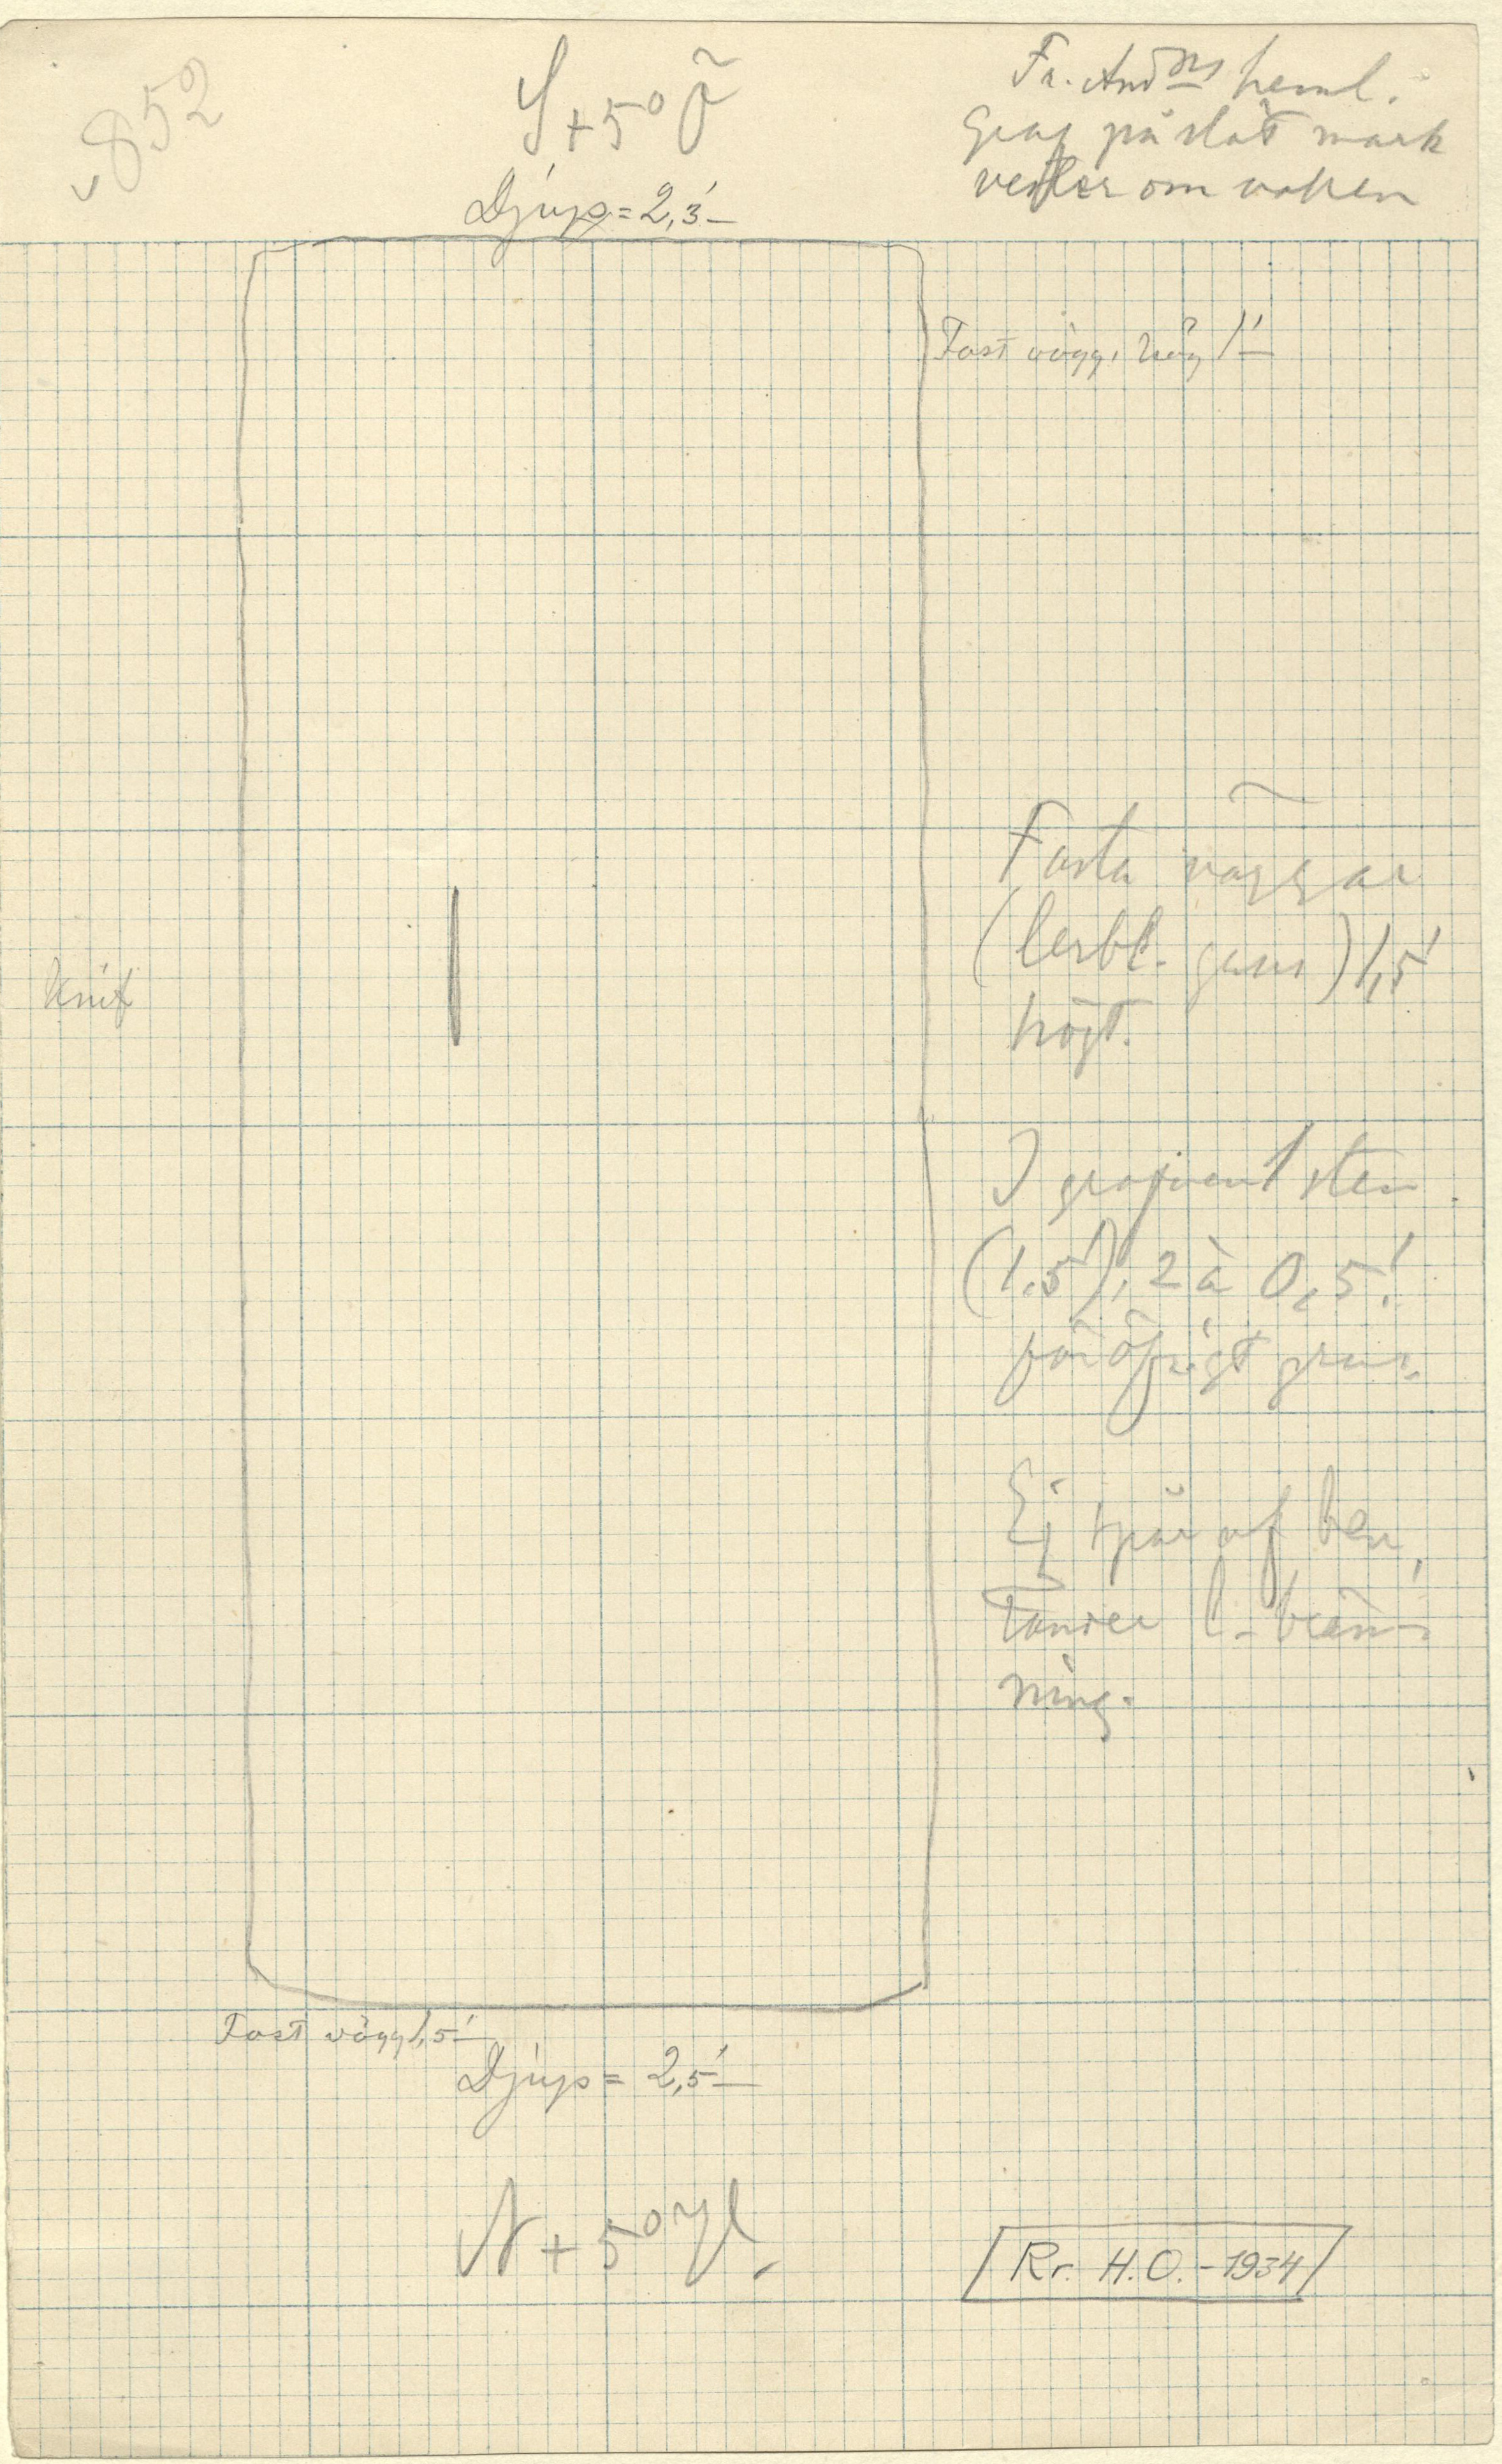 852
S+5° Ö
Djup = 2,3'
Fr. And:ns heml.
Graf på slät mark
vester om vaken
Fast vägg, hög 1'
Fasta väggar
(lerbl. grus) 1,5'
högt.
Knif
I grafven 1 sten
(1.5'), 2 à 0,5'.
för öfrigt grus.
Ej spår af ben,
tänder l. brän-
ning.
Fast vägg 1,5'
Djup = 2,5'
N+5° V.
Rr. H.O. - 1934